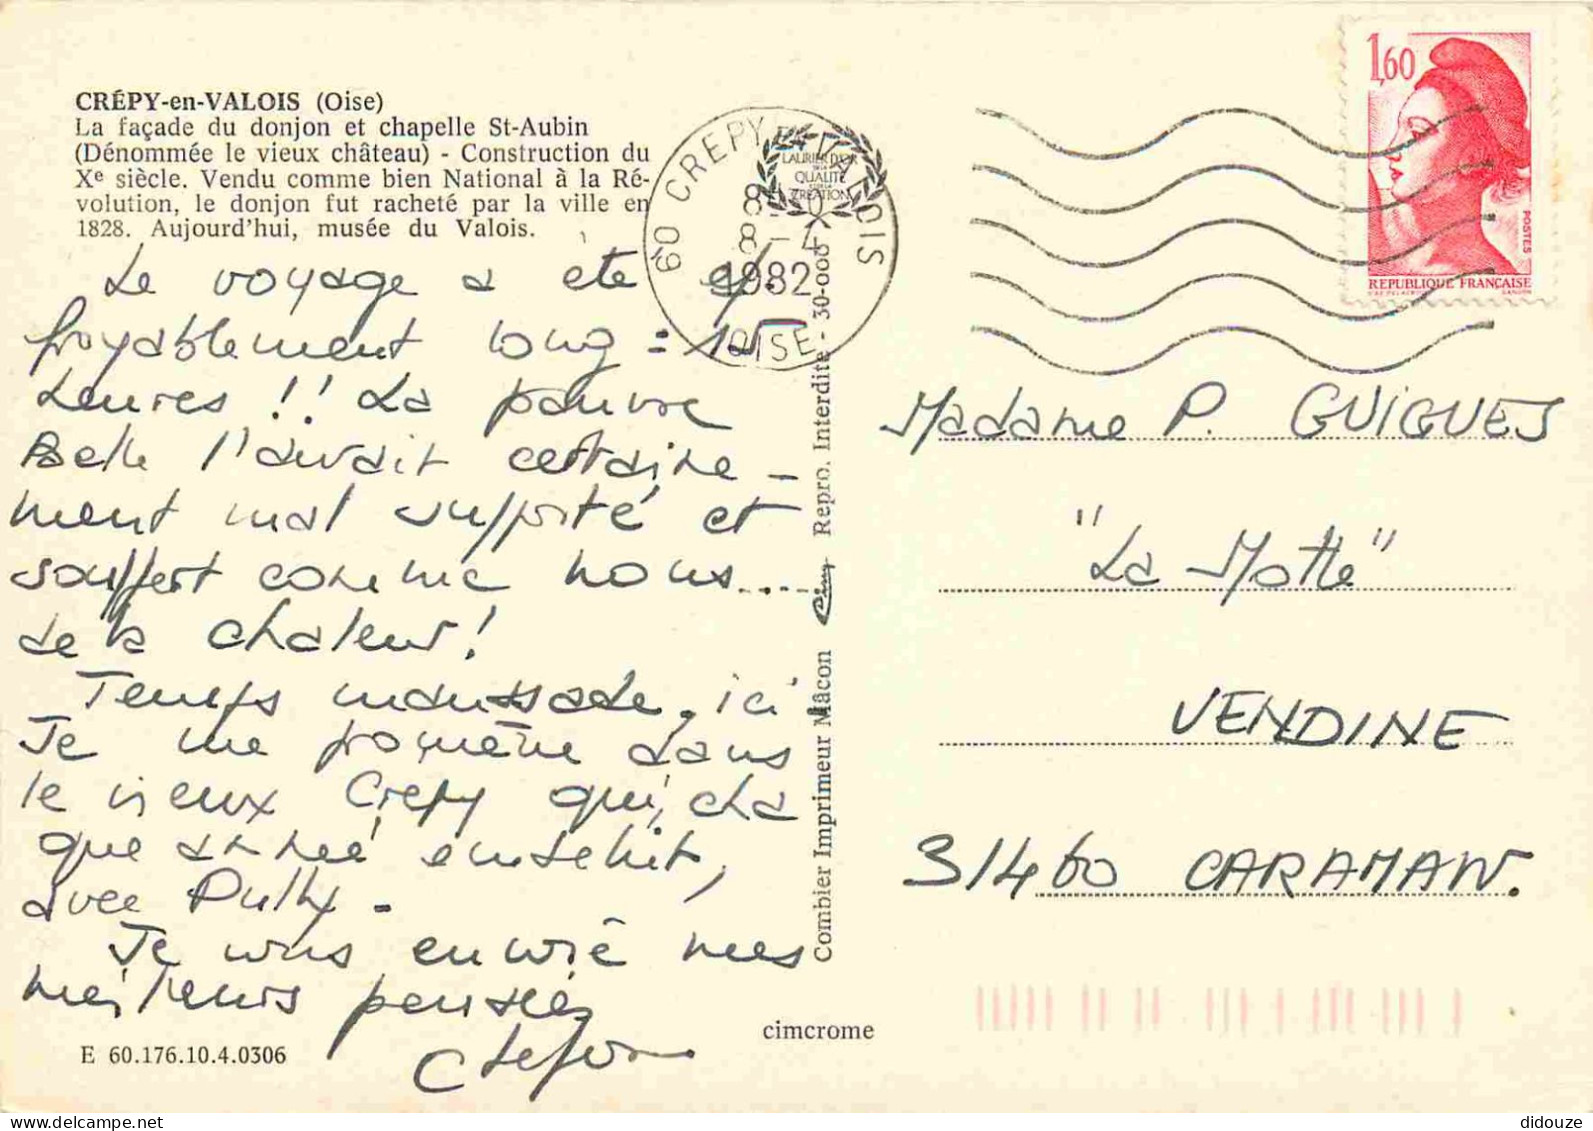 CRÉPY-en-VALOIS (Oise)
La façade du donjon et chapelle St-Aubin
(Dénommée le vieux château) - Construction du
Xe siècle. Vendu comme bien National à la Ré-
volution, le donjon fut racheté par la ville en
1828. Aujourd'hui, musée du Valois.
Le voyage a ete ef-
froyablement long = 15
heures !! La pauvre
Belle l'aurait certaine-
ment mal supporté et
souffert comme nous....
de la chaleur!
Temps maussade, ici
Je me promène dans
le vieux Crépy qui, cha
que année embellit,
avec
Je vous envoie mes
meilleurs pensées
E 60.176.10.4.0306
cimcrome
Combier Imprimeur Mâcon Cim Repro. Interdite - 30-000
LAURIER D'OR
DE LA
QUALITÉ
CRÉATION
60 CREPY EN VALOIS
8 - 4
1982
OISE
1,60
POSTES
REPUBLIQUE FRANÇAISE
Madame P. GUIGUES
"La Motte"
VENDINE
31460 CARAMAN.
didouze